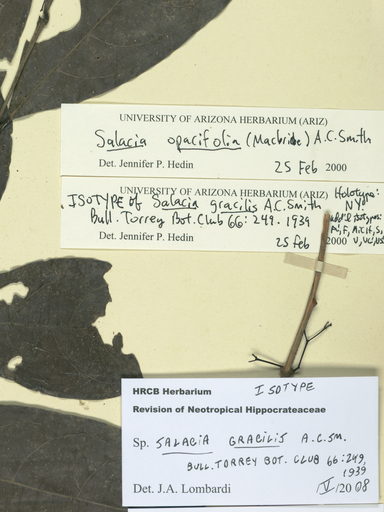 UNIVERSITY OF ARIZONA HERBARIUM (ARIZ)
Salacia opacifolia (Macbride) A.C. Smith
Det. Jennifer P. Hedin 25 Feb 2000
UNIVERSITY OF ARIZONA HERBARIUM (ARIZ) Holotype:
ISOTYPE of Salacia gracilis A.C. Smith NY!
Bull. Torrey Bot. Club 66: 249. 1939
Det. Jennifer P. Hedin 25 Feb 2000
HRCB Herbarium ISOTYPE
Revision of Neotropical Hippocrateaceae
Sp. SALACIA GRACILIS A.C.SM.
BULL. TORREY BOT. CLUB 66:249,
1939
Det. J.A. Lombardi /V/2008